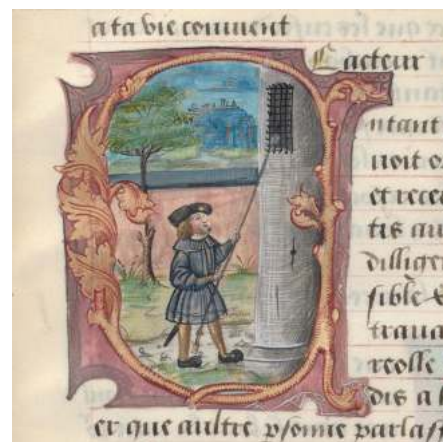 a ta vie comment
Lacteur
ntant
uoit o
et recee
tis au
dilligen
sible
trauai
reolle
dis a l
er que aultre psonne parlast